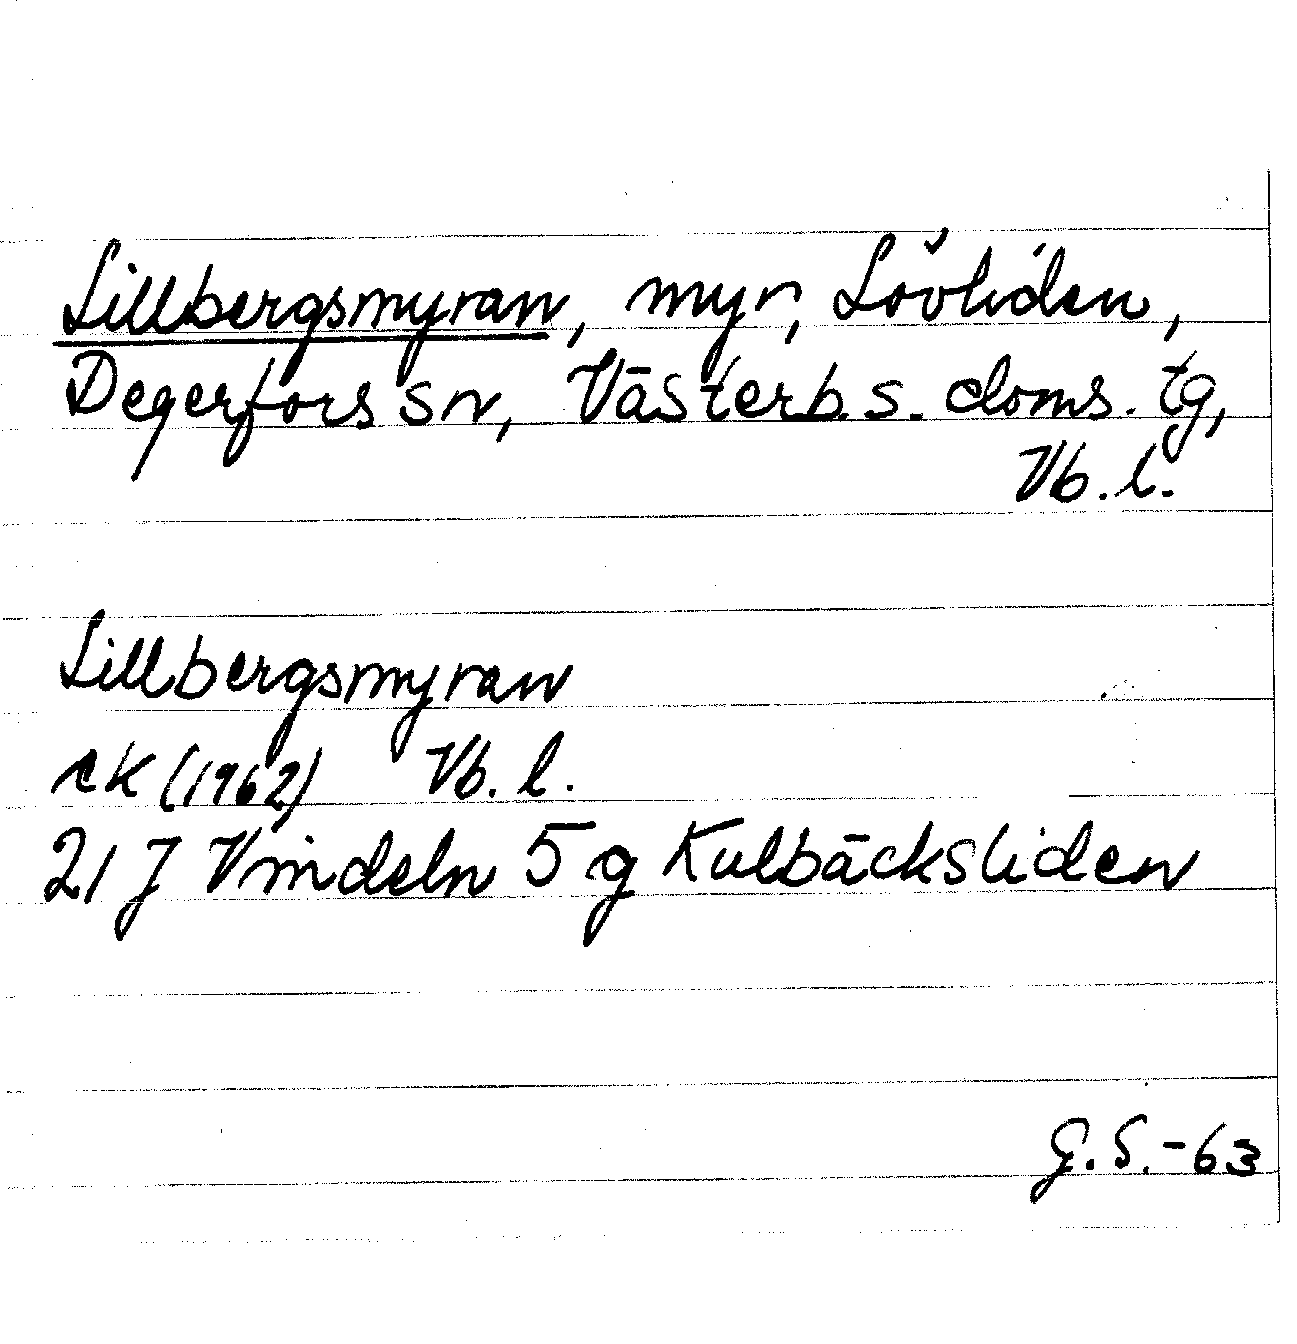 Lillbergsmyran, myr, Lövliden,
Degerfors sn, Västerb. s. doms. tg,
Vb. l.
Lillbergsmyran
rk (1962) Vb. l.
21 J Vindeln 5 g Kulbäcksliden
G. S. -63